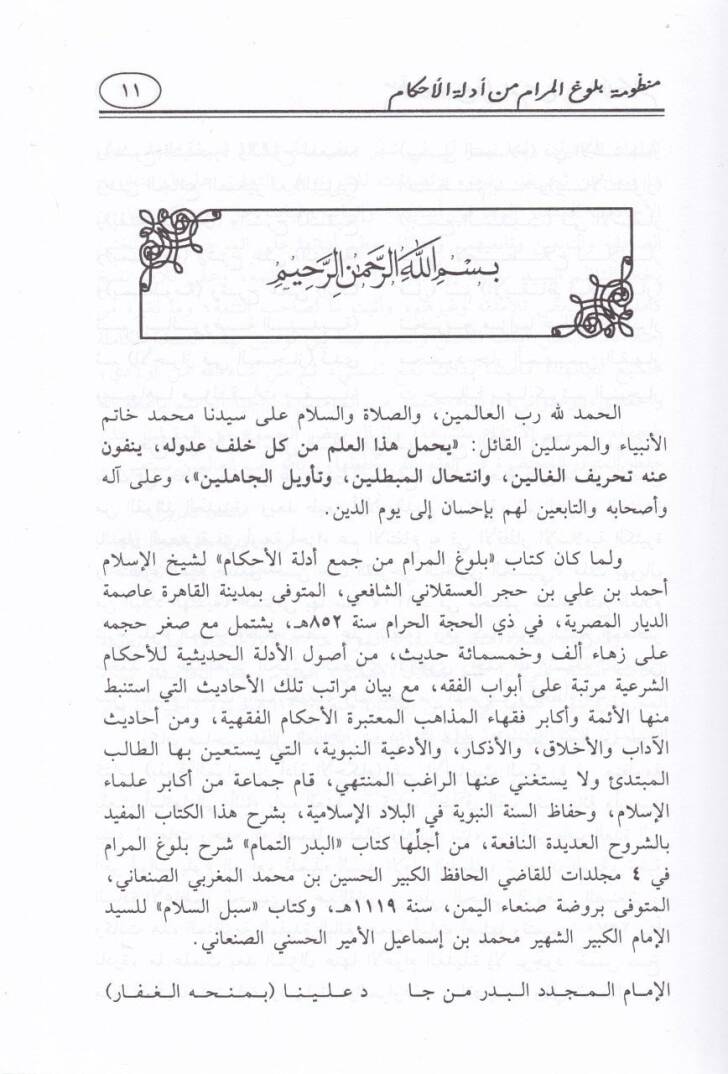 منظومة بلوغ المرام من أدلة الأحكام
١١
بسم الله الرحمن الرحيم
الحمد لله رب العالمين، والصلاة والسلام على سيدنا محمد خاتم
الأنبياء والمرسلين القائل: «يحمل هذا العلم من كل خلف عدوله، ينفون
عنه تحريف الغالين، وانتحال المبطلين، وتأويل الجاهلين»، وعلى آله
وأصحابه والتابعين لهم بإحسان إلى يوم الدين.
ولما كان كتاب «بلوغ المرام من جمع أدلة الأحكام» لشيخ الإسلام
أحمد بن علي بن حجر العسقلاني الشافعي، المتوفى بمدينة القاهرة عاصمة
الديار المصرية، في ذي الحجة الحرام سنة ٨٥٢هـ، يشتمل مع صغر حجمه
على زهاء ألف وخمسمائة حديث، من أصول الأدلة الحديثية للأحكام
الشرعية مرتبة على أبواب الفقه، مع بيان مراتب تلك الأحاديث التي استنبط
منها الأئمة وأكابر فقهاء المذاهب المعتبرة الأحكام الفقهية، ومن أحاديث
الآداب والأخلاق، والأذكار، والأدعية النبوية، التي يستعين بها الطالب
المبتدئ ولا يستغني عنها الراغب المنتهي، قام جماعة من أكابر علماء
الإسلام، وحفاظ السنة النبوية في البلاد الإسلامية، بشرح هذا الكتاب المفيد
بالشروح العديدة النافعة، من أجلّها كتاب «البدر التمام» شرح بلوغ المرام
في ٤ مجلدات للقاضي الحافظ الكبير الحسين بن محمد المغربي الصنعاني،
المتوفى بروضة صنعاء اليمن، سنة ١١١٩هـ، وكتاب «سبل السلام» للسيد
الإمام الكبير الشهير محمد بن إسماعيل الأمير الحسني الصنعاني.
الإمام المجدد البدر من جا د علينا (بمنحه الغفار)